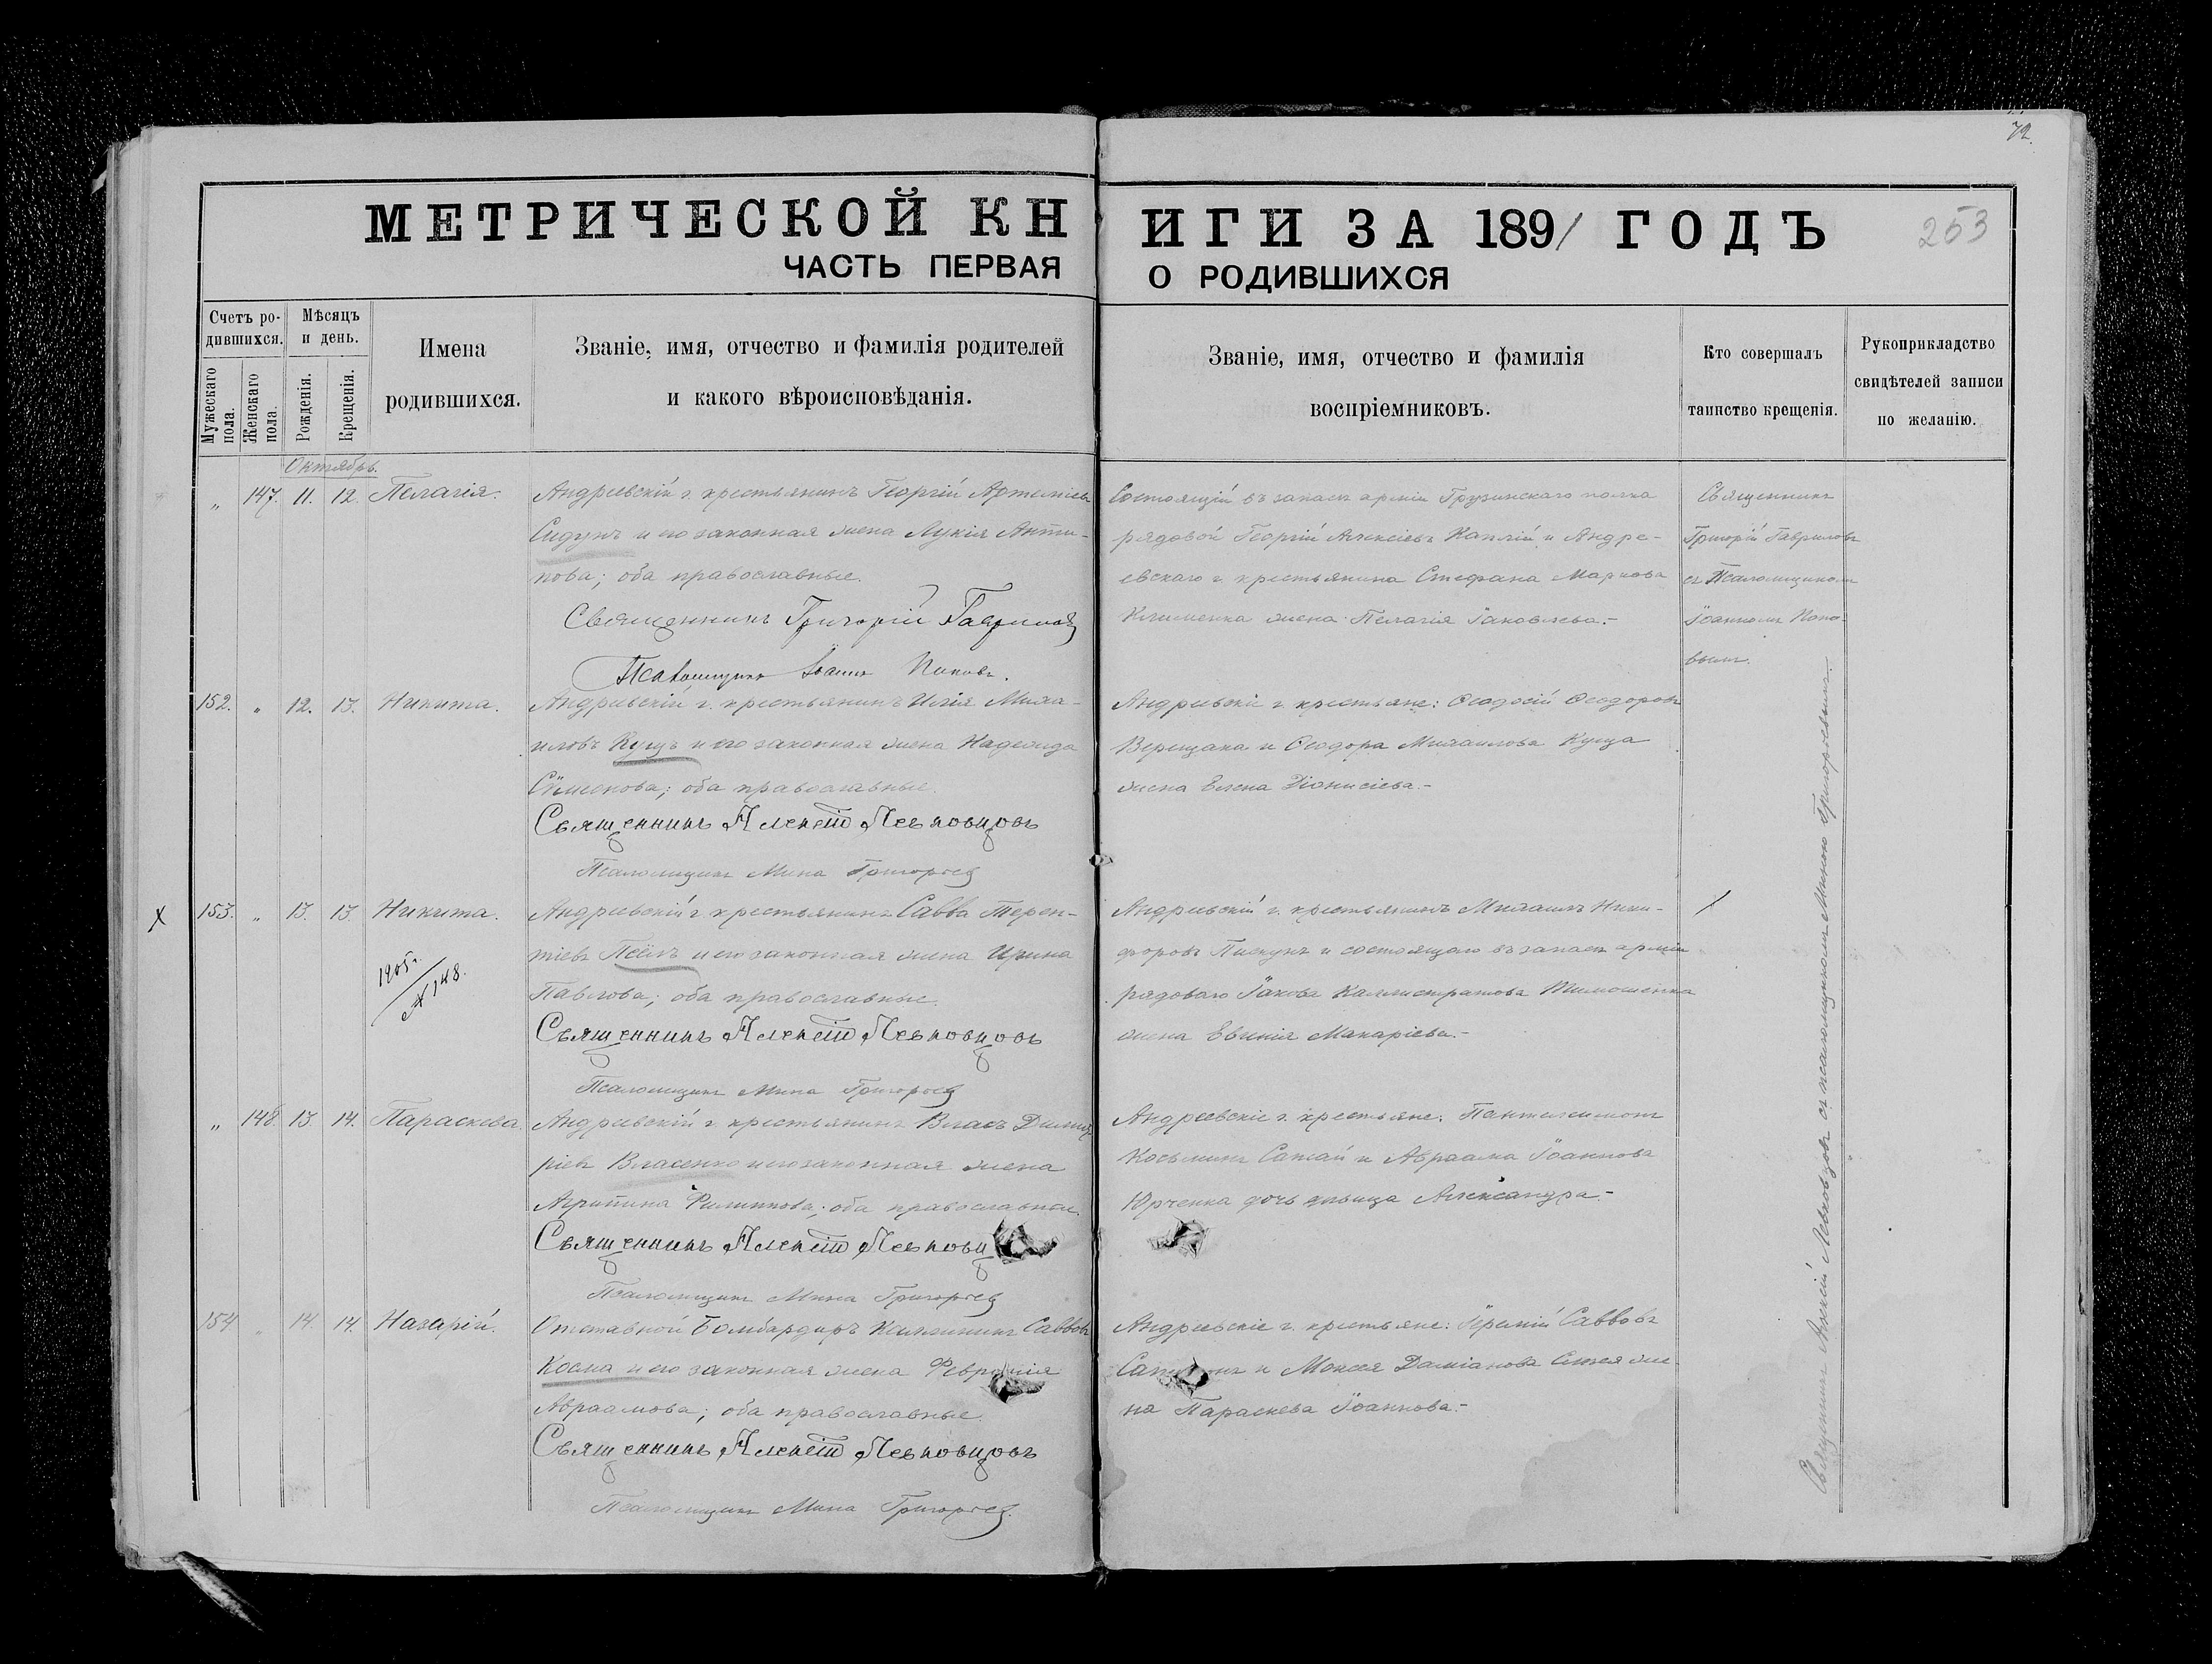 72.
МЕТРИЧЕСКОЙ КНИГИ ЗА 1891 ГОДЪ
253
ЧАСТЬ ПЕРВАЯ О РОДИВШИХСЯ
Счетъ родившихся.
Мужескаго пола.
Женскаго пола.
Мѣсяцъ и день.
Рожденія.
Крещенія.
Имена
родившихся.
Званіе, имя, отчество и фамилія родителей
и какого вѣроисповѣданія.
Званіе, имя, отчество и фамилія
воспріемниковъ.
Кто совершалъ
таинство крещенія.
Рукоприкладство
свидѣтелей записи
по желанію.
Октябрь.
„ 147. 11. 12. Пелагія.
Андреевскій г. крестьянинъ Георгій Артеміевъ
Сидунъ и его законная жена Лукія Анти-
пова; оба православные.
Священникъ Григорій Гавриловъ
Псаломщикъ Іоаннъ Поповъ.
Состоящій въ запасѣ арміи Грузинскаго полка
рядовой Георгій Алексіевъ Каплій и Андре-
евскаго г. крестьянина Стефана Маркова
Клименка жена Пелагія Іаковлева.-
Священникъ
Григорій Гавриловъ
съ Псаломщикомъ
Іоанномъ Попо-
вымъ.
152. „ 12. 13. Никита.
Андреевскій г. крестьянинъ Илія Миха-
иловъ Куцъ и его законная жена Надежда
Сѵмеонова; оба православные.
Священникъ Алексій Левковцовъ
Псаломщикъ Мина Григорьевъ
Андреевскіе г. крестьяне: Ѳеодосій Ѳеодоровъ
Верещака и Ѳеодора Михаилова Куца
жена Елена Діонисіева.-
X 153. „ 13. 13. Никита.
1905 г.
№ 148.
Андреевскій г. крестьянинъ Савва Терен-
тіевъ Псёлъ и его законная жена Ирина
Павлова; оба православные.
Священникъ Алексій Левковцовъ
Псаломщикъ Мина Григорьевъ
Андреевскій г. крестьянинъ Михаилъ Ники-
форовъ Пискунъ и состоящаго въ запасѣ арміи
рядоваго Іакова Каллистратова Тимошенка
жена Евгенія Макаріева.-
X
„ 148. 13. 14. Параскева.
Андреевскій г. крестьянинъ Власъ Димит-
ріевъ Власенко и его законная жена
Агрипина Филиппова; оба православные.
Священникъ Алексій Левковц
Псаломщикъ Мина Григорьевъ
Андреевскіе г. крестьяне: Пантелеимонъ
Косьминъ Сажай и Авраама Іоаннова
Юрченка дочь дѣвица Александра.-
154 „ 14. 14. Назарій.
Отставной Бомбардиръ Каллиникъ Саввовъ
Косма и его законная жена Февронія
Авраамова; оба православные.
Священникъ Алексій Левковцовъ
Псаломщикъ Мина Григорьевъ.
Андреевскіе г. крестьяне: Іеремій Саввовъ
и Моисея Даміанова же-
на Параскева Іоаннова.-
Священникъ Алексій Левковцовъ съ псаломщикомъ Миною Григорьевымъ.